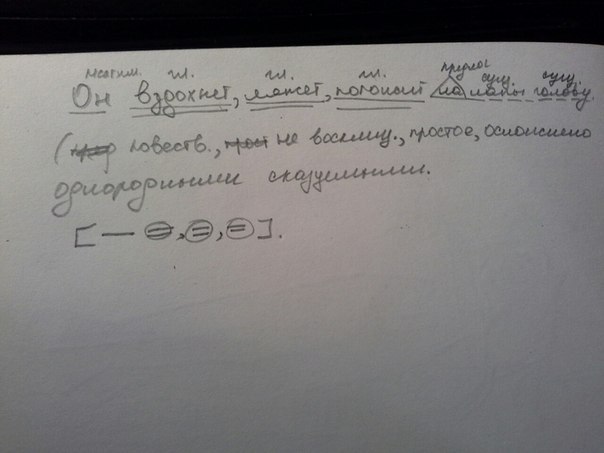 местоим. гл. гл. гл. предлог сущ. сущ.
Он вздохнет, ляжет, положит на лапы голову.
(повеств., не восклиц., простое, осложнено
однородными сказуемыми.
[— =, =, =].